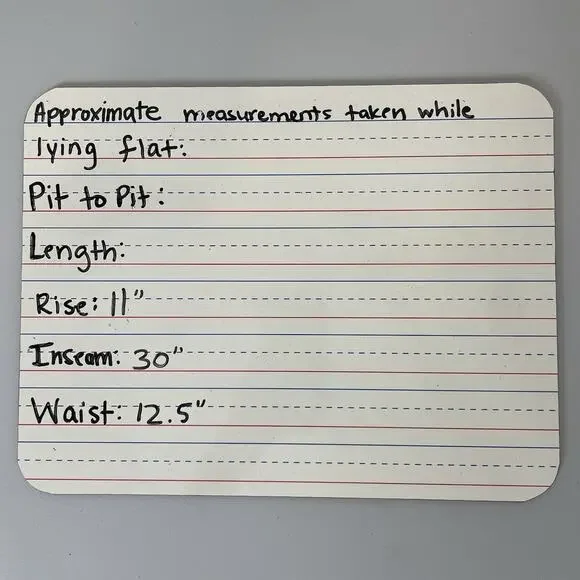 Approximate measurements taken while
lying flat:
Pit to Pit:
Length:
Rise: 11"
Inseam: 30"
Waist: 12.5"